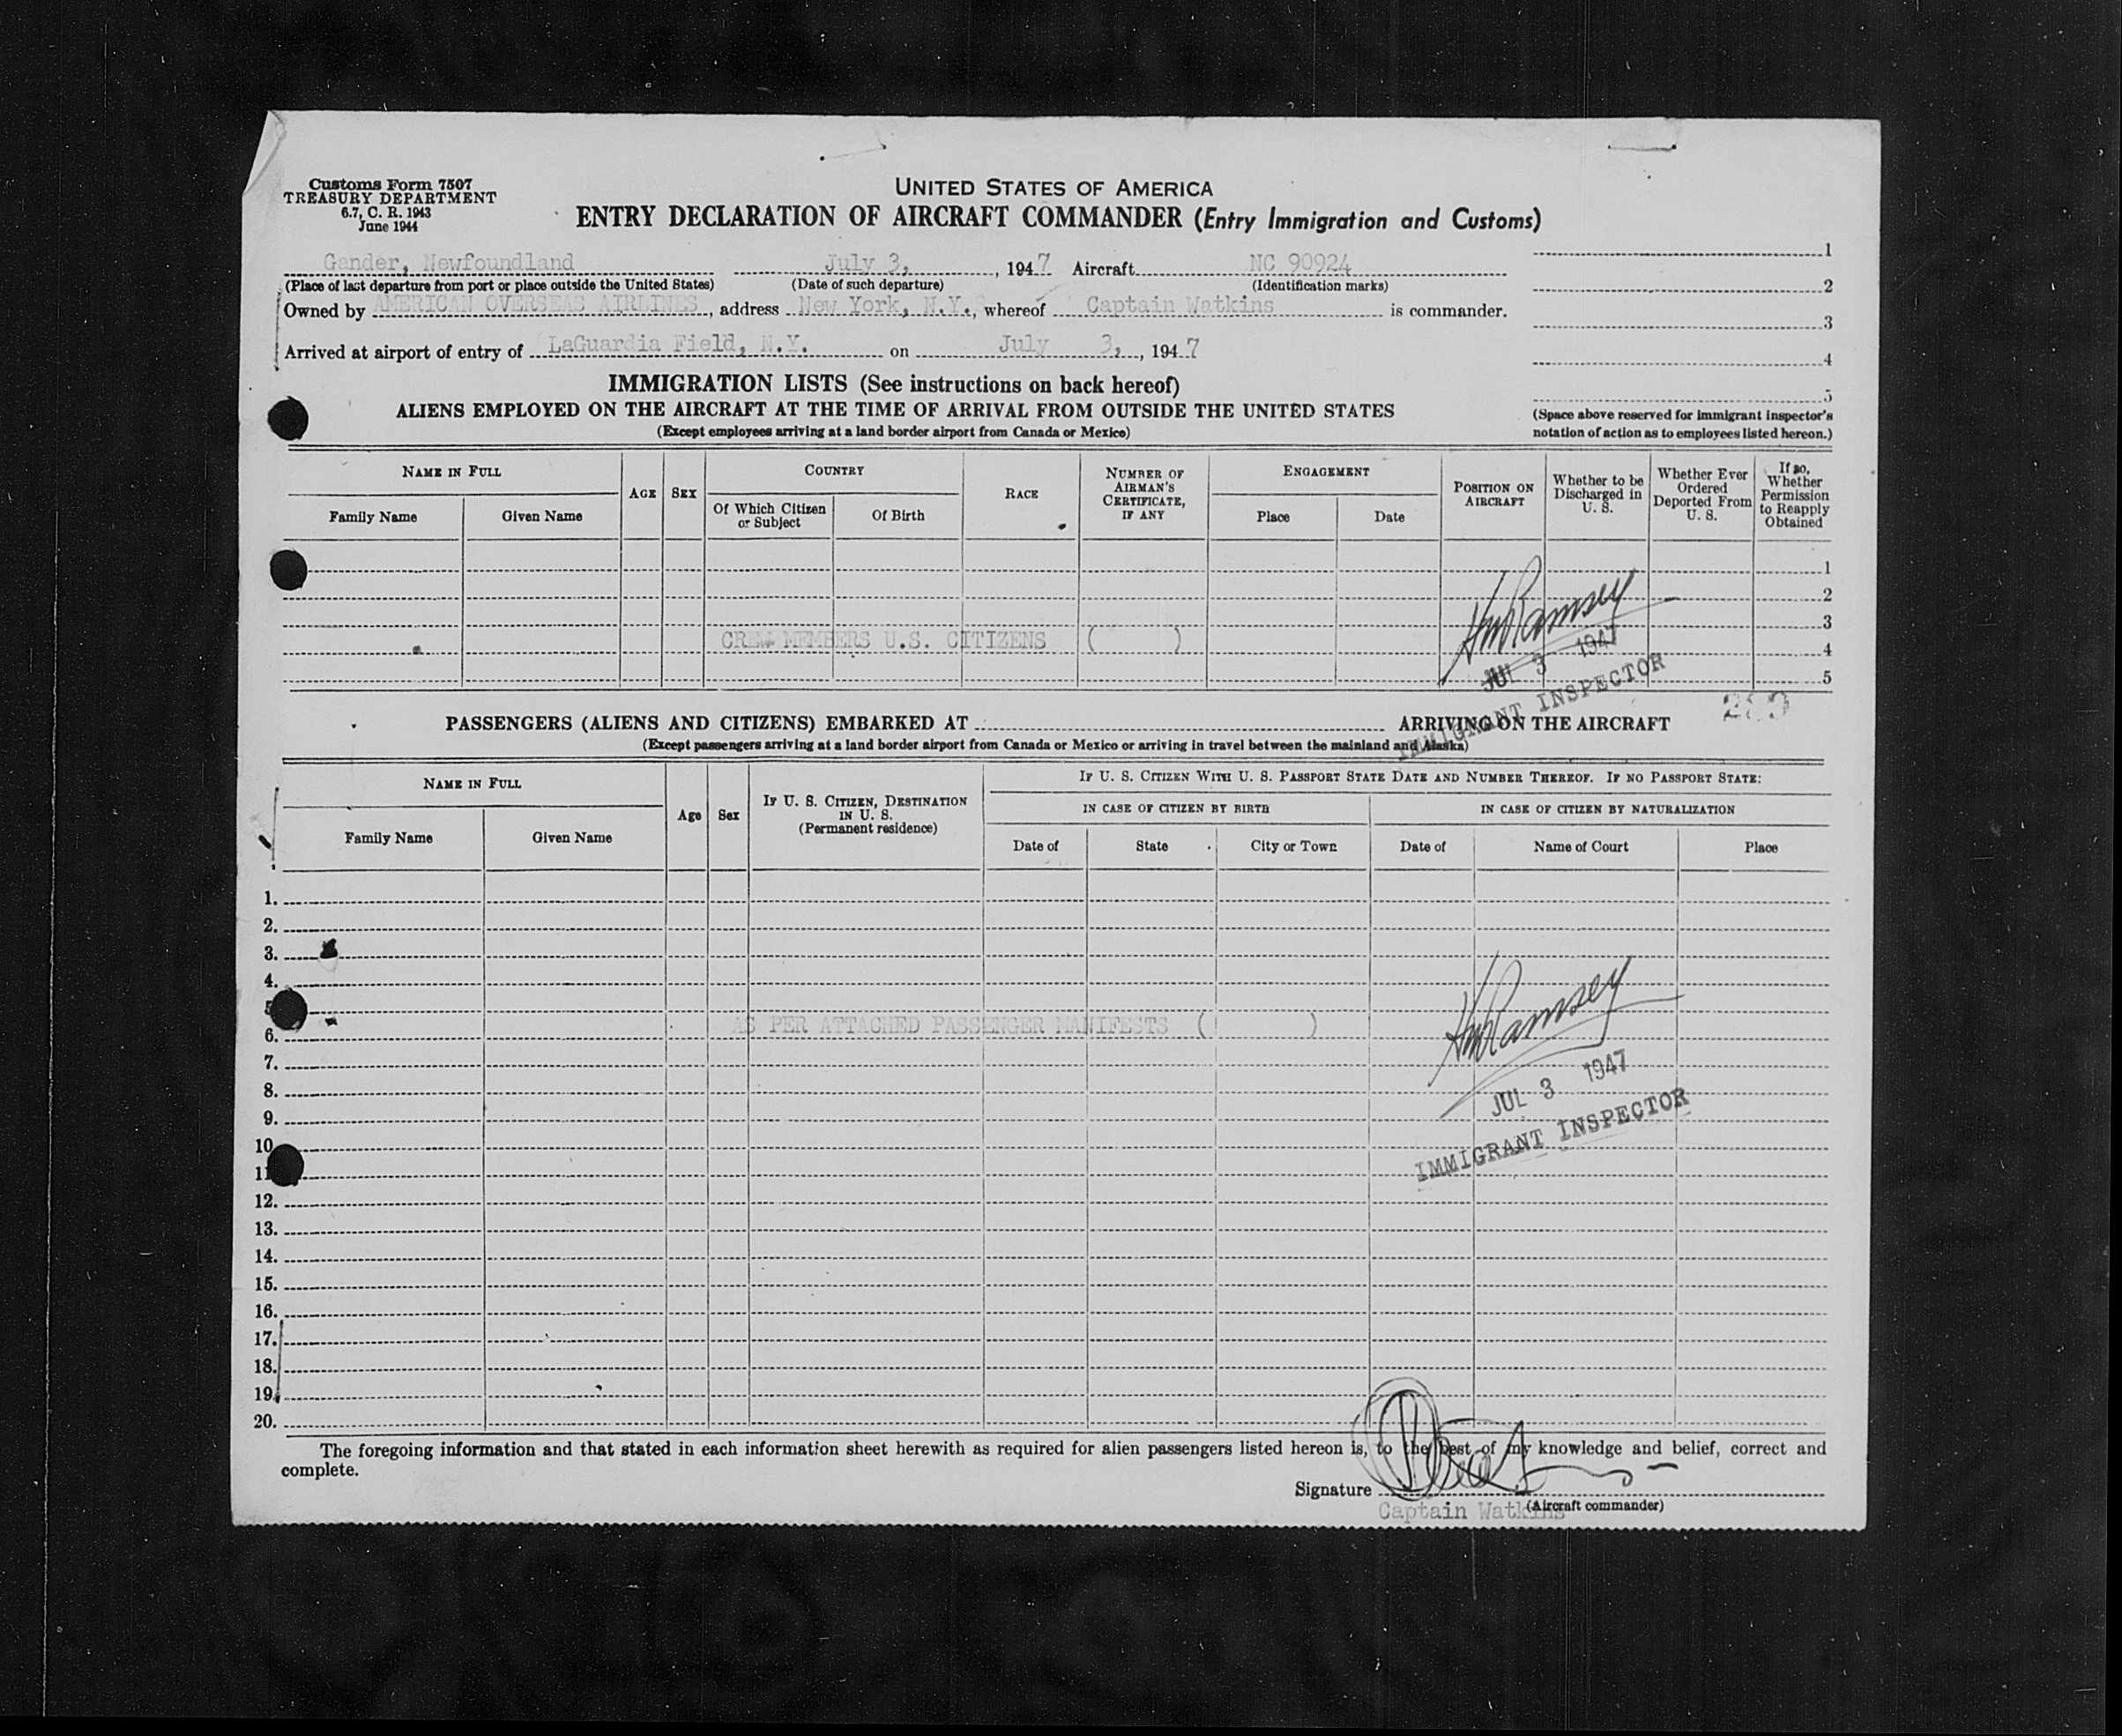 Customs Form 7507
TREASURY DEPARTMENT
6.7, C. R. 1943
June 1944
UNITED STATES OF AMERICA
ENTRY DECLARATION OF AIRCRAFT COMMANDER (Entry Immigration and Customs)
Gander, Newfoundland July 3, , 1947 Aircraft NC 90924
(Place of last departure from port or place outside the United States) (Date of such departure) (Identification marks)
Owned by AMERICAN OVERSEAS AIRLINES, address New York, N.Y., whereof Captain Watkins is commander.
Arrived at airport of entry of LaGuardia Field, N.Y. on July 3, , 1947
1
2
3
4
5
(Space above reserved for immigrant inspector's
notation of action as to employees listed hereon.)
IMMIGRATION LISTS (See instructions on back hereof)
ALIENS EMPLOYED ON THE AIRCRAFT AT THE TIME OF ARRIVAL FROM OUTSIDE THE UNITED STATES
(Except employees arriving at a land border airport from Canada or Mexico)
NAME IN FULL
Family Name
Given Name
AGE
SEX
COUNTRY
Of Which Citizen
or Subject
Of Birth
RACE
NUMBER OF
AIRMAN'S
CERTIFICATE,
IF ANY
ENGAGEMENT
Place
Date
POSITION ON
AIRCRAFT
Whether to be
Discharged in
U. S.
Whether Ever
Ordered
Deported From
U. S.
If so,
Whether
Permission
to Reapply
Obtained
1
2
3
CREW MEMBERS U.S. CITIZENS ( )
4
5
HW Ramsey
JUL 3 1947
IMMIGRANT INSPECTOR
PASSENGERS (ALIENS AND CITIZENS) EMBARKED AT ARRIVING ON THE AIRCRAFT
(Except passengers arriving at a land border airport from Canada or Mexico or arriving in travel between the mainland and Alaska)
NAME IN FULL
Family Name
Given Name
Age
Sex
IF U. S. CITIZEN, DESTINATION
IN U. S.
(Permanent residence)
IF U. S. CITIZEN WITH U. S. PASSPORT STATE DATE AND NUMBER THEREOF. IF NO PASSPORT STATE:
IN CASE OF CITIZEN BY BIRTH
IN CASE OF CITIZEN BY NATURALIZATION
Date of
State
City or Town
Date of
Name of Court
Place
1.
2.
3.
4.
5
6.
AS PER ATTACHED PASSENGER MANIFESTS ( )
7.
8.
9.
10
11
12.
13.
14.
15.
16.
17.
18.
19.
20.
HW Ramsey
JUL 3 1947
IMMIGRANT INSPECTOR
The foregoing information and that stated in each information sheet herewith as required for alien passengers listed hereon is, to the best of my knowledge and belief, correct and
complete.
Signature
(Aircraft commander)
Captain Watkins